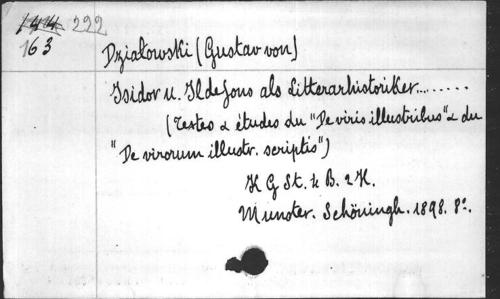 222
163
Działowski (Gustav von)
Isidor u. Ildefons als Litterarhistoriker........
(Textes & études du "De viris illustribus" & du
"De virorum illustr. scriptis")
K G St. 4 B. 2 H.
Munster. Schöningh. 1898. 8º.